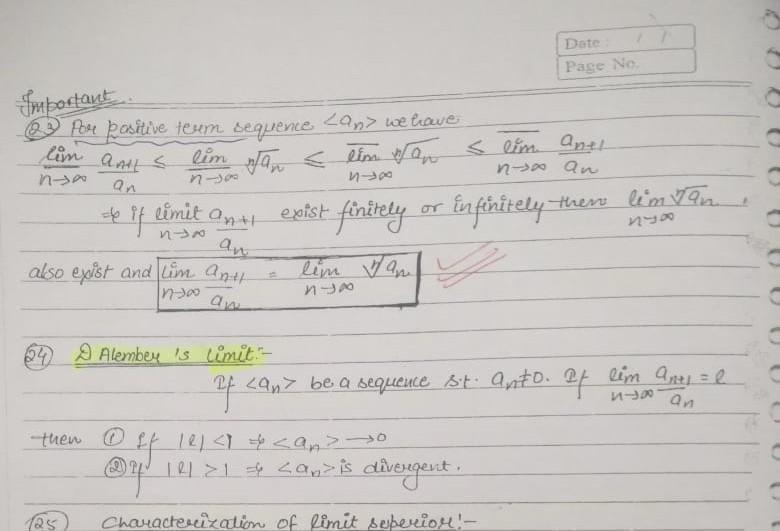 Date : / /
Page No.
Important.
(23) For positive term sequence <aₙ> we have
l̲i̲m̲ n→∞ aₙ₊₁/aₙ ≤ l̲i̲m̲ n→∞ ⁿ√aₙ ≤ l̅i̅m̅ n→∞ ⁿ√aₙ ≤ l̅i̅m̅ n→∞ aₙ₊₁/aₙ
⇒ if limit n→∞ aₙ₊₁/aₙ exist finitely or infinitely then lim n→∞ ⁿ√aₙ
also exist and lim n→∞ aₙ₊₁/aₙ = lim n→∞ ⁿ√aₙ
(24) D Alember 's limit:-
If <aₙ> be a sequence s.t. aₙ≠0. If lim n→∞ aₙ₊₁/aₙ = l
then ① If |l|<1 ⇒ <aₙ> →0
② If |l| >1 ⇒ <aₙ> is divergent.
(25) Characterization of limit superior:-